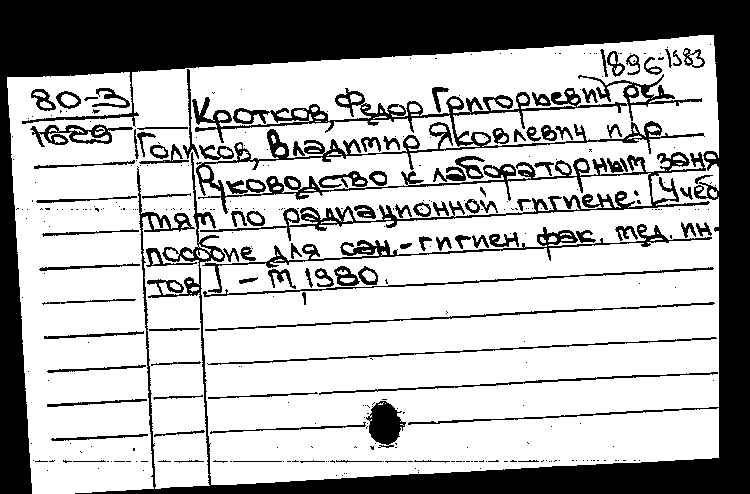 1896-1983
80-3
1629
Кротков, Федор Григорьевич, ред.
Голиков, Владимир Яковлевич и др.
Руководство к лабораторным заня
тиям по радиационной гигиене: [Учеб
пособие для сан.-гигиен. фак. мед. ин-
тов]. - М, 1980.